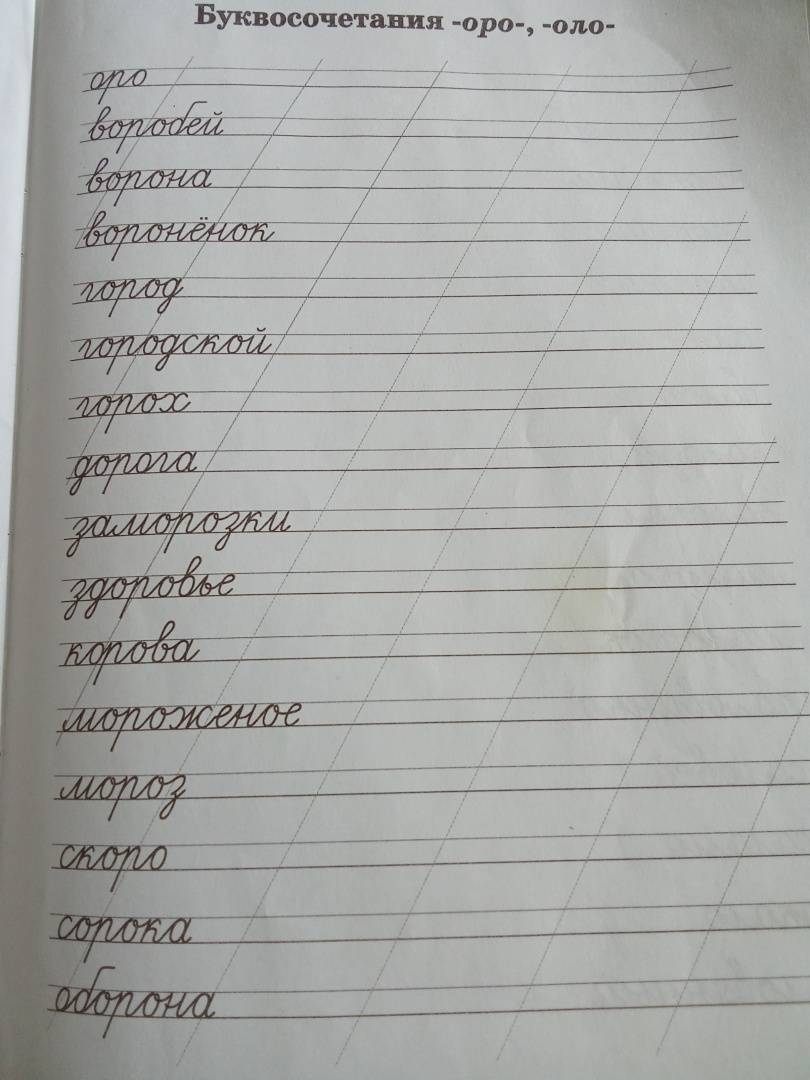 Буквосочетания -оро-, -оло-
оро
воробей
ворона
воронёнок
город
городской
горох
дорога
заморозки
здоровье
корова
мороженое
мороз
скоро
сорока
оборона